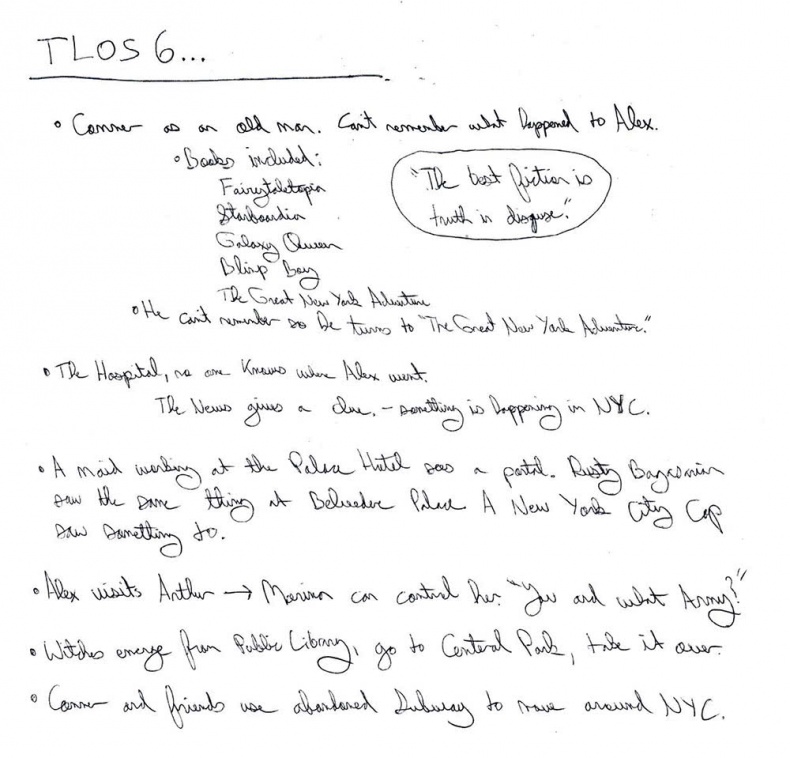 TLOS 6...
• Conner as an old man. Can't remember what happened to Alex.
• Books included:
Fairytaletopia
Starboardia
Galaxy Queen
Blimp Boy
The Great New York Adventure
"The best fiction is
truth in disguse."
• He can't remember so he turns to "The Great New York Adventure."
• The Hospital, no one knows where Alex went.
The News gives a clue. - something is happening in NYC.
• A maid working at the Palace Hotel saw a portal. Rusty
saw the same thing at Belvedere Palace A New York City Cop
saw something to.
• Alex visits Arthur → can control her. "You and what Army?"
• Witches emerge from Public Library, go to Central Park, take it over.
• Conner and friends use abandoned Subway to move around NYC.